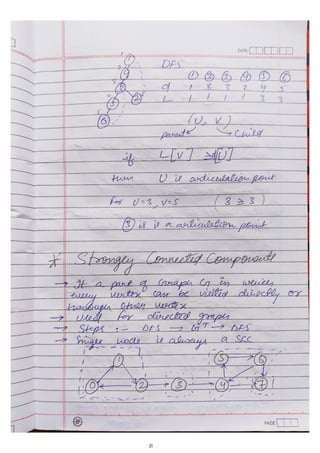 DATE
DFS
1 2 3 4 5 6
d 1 5 3 2 4 5
L 1 1 1 1 3 3
(U, V)
parent Child
if L[V] ≥ d[U]
then U is articulation point
for U=3, V=5 (3 ≥ 3)
3 is a articulation point
* Strongly Connected Components
→ It a part of Graph G in which
every vertex can be visited directly or
through other vertex
→ Used for directed graph
→ Steps :- DFS → G^T → DFS
→ Single node is always a SCC
1 5 6
0 2 3 4 7
PAGE
21